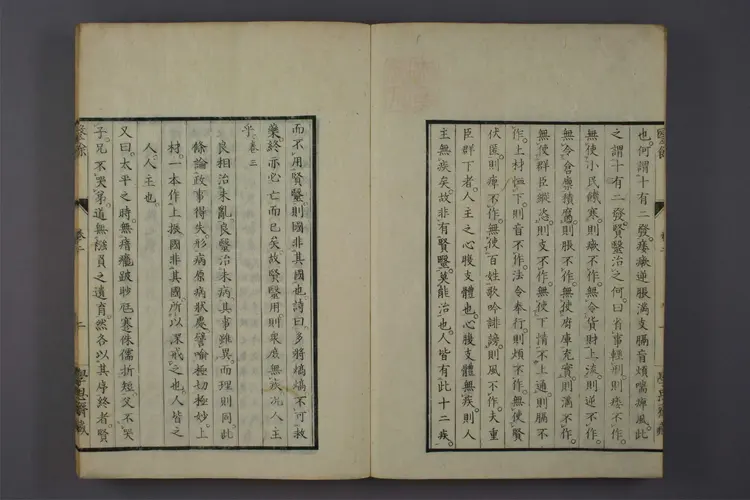 也。何謂十有二發。痿、瘚、逆、脹、滿、支、膈、盲、煩、喘、痺、風。此
之謂十有二發。賢毉治之何。曰。省事輕刑。則痿不作。
無使小民饑寒。則瘚不作。無令貨財上流。則逆不作。
無令倉廩積腐。則脹不作。無使府庫充實。則滿不作。
無使群臣縱恣。則支不作。無使下情不上通。則膈不
作。上材恤下。則盲不作。法令奉行。則煩不作。無使賢
伏匿。則痺不作。無使百姓歌吟誹謗。則風不作。夫重
臣群下者。人主之心腹支體也。心腹支體無疾。則人
主無疾矣。故非有賢毉。莫能治也。人皆有此十二疾。
而不用賢毉。則國非其國也。詩曰。多將熇熇。不可救
藥。終亦必亡而已矣。故賢毉用。則衆庶無疾。況人主
乎。卷三
良相治未亂。良毉治未病。其事雖異。而理則同。此
條論政事得失。形病原病狀。譬喻極切極妙。上
材。一本作上振。國非其國。所以深戒之也。人皆之
人。人主也。
又曰。太平之時。無瘖聾跛眇尫蹇侏儒折短。父不哭
子。兄不哭弟。道無襁負之遺育。然各以其序終者。賢
學思齋藏